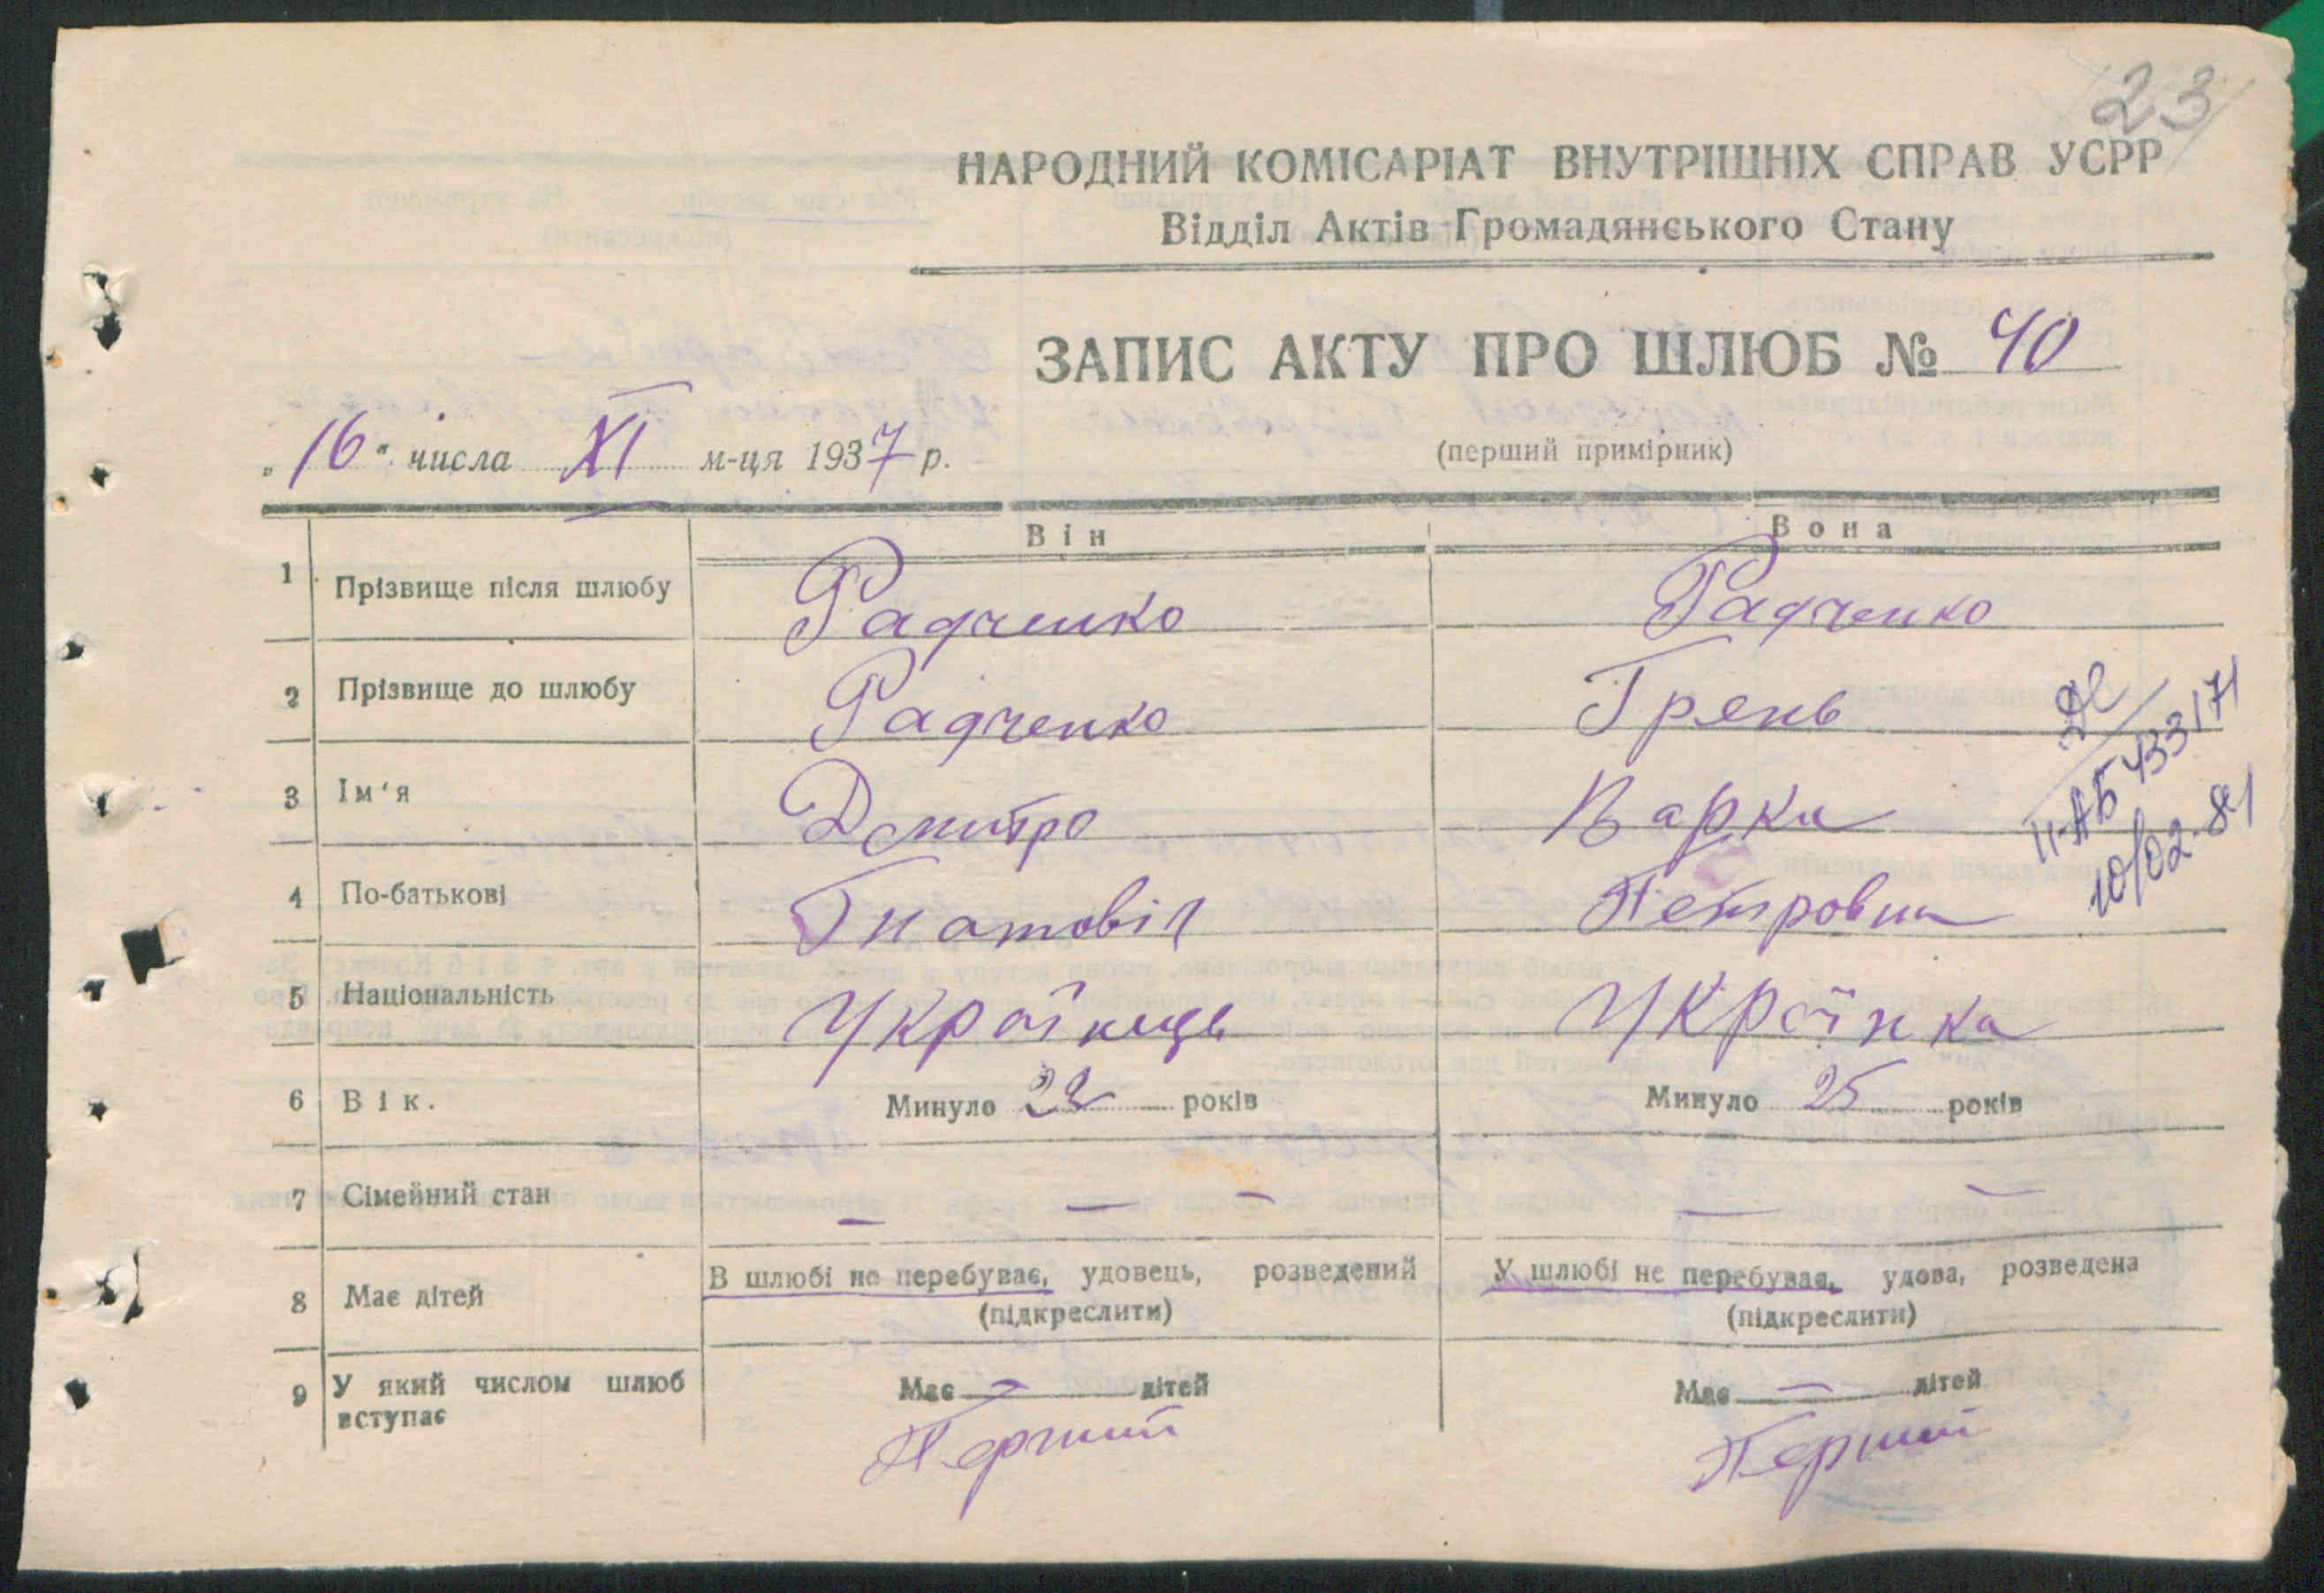 23
НАРОДНИЙ КОМІСАРІАТ ВНУТРІШНІХ СПРАВ УСРР
Відділ Актів Громадянського Стану
ЗАПИС АКТУ ПРО ШЛЮБ № 40
„16“ числа XI м-ця 1937 р.
(перший примірник)
Він Вона
1 Прізвище після шлюбу Радченко Радченко
2 Прізвище до шлюбу Радченко Грень
3 Ім‘я Дмитро Варка
4 По-батькові Гнатовіч Петровна
II-АБ 433171
10/02-81
5 Національність Українець Українка
6 Вік. Минуло 22 років Минуло 25 років
7 Сімейний стан — — — — —
8 Має дітей В шлюбі не перебуває, удовець, розведений У шлюбі не перебуває, удова, розведена
(підкреслити) (підкреслити)
9 У який числом шлюб вступає Має — дітей Має — дітей
Перший Перший